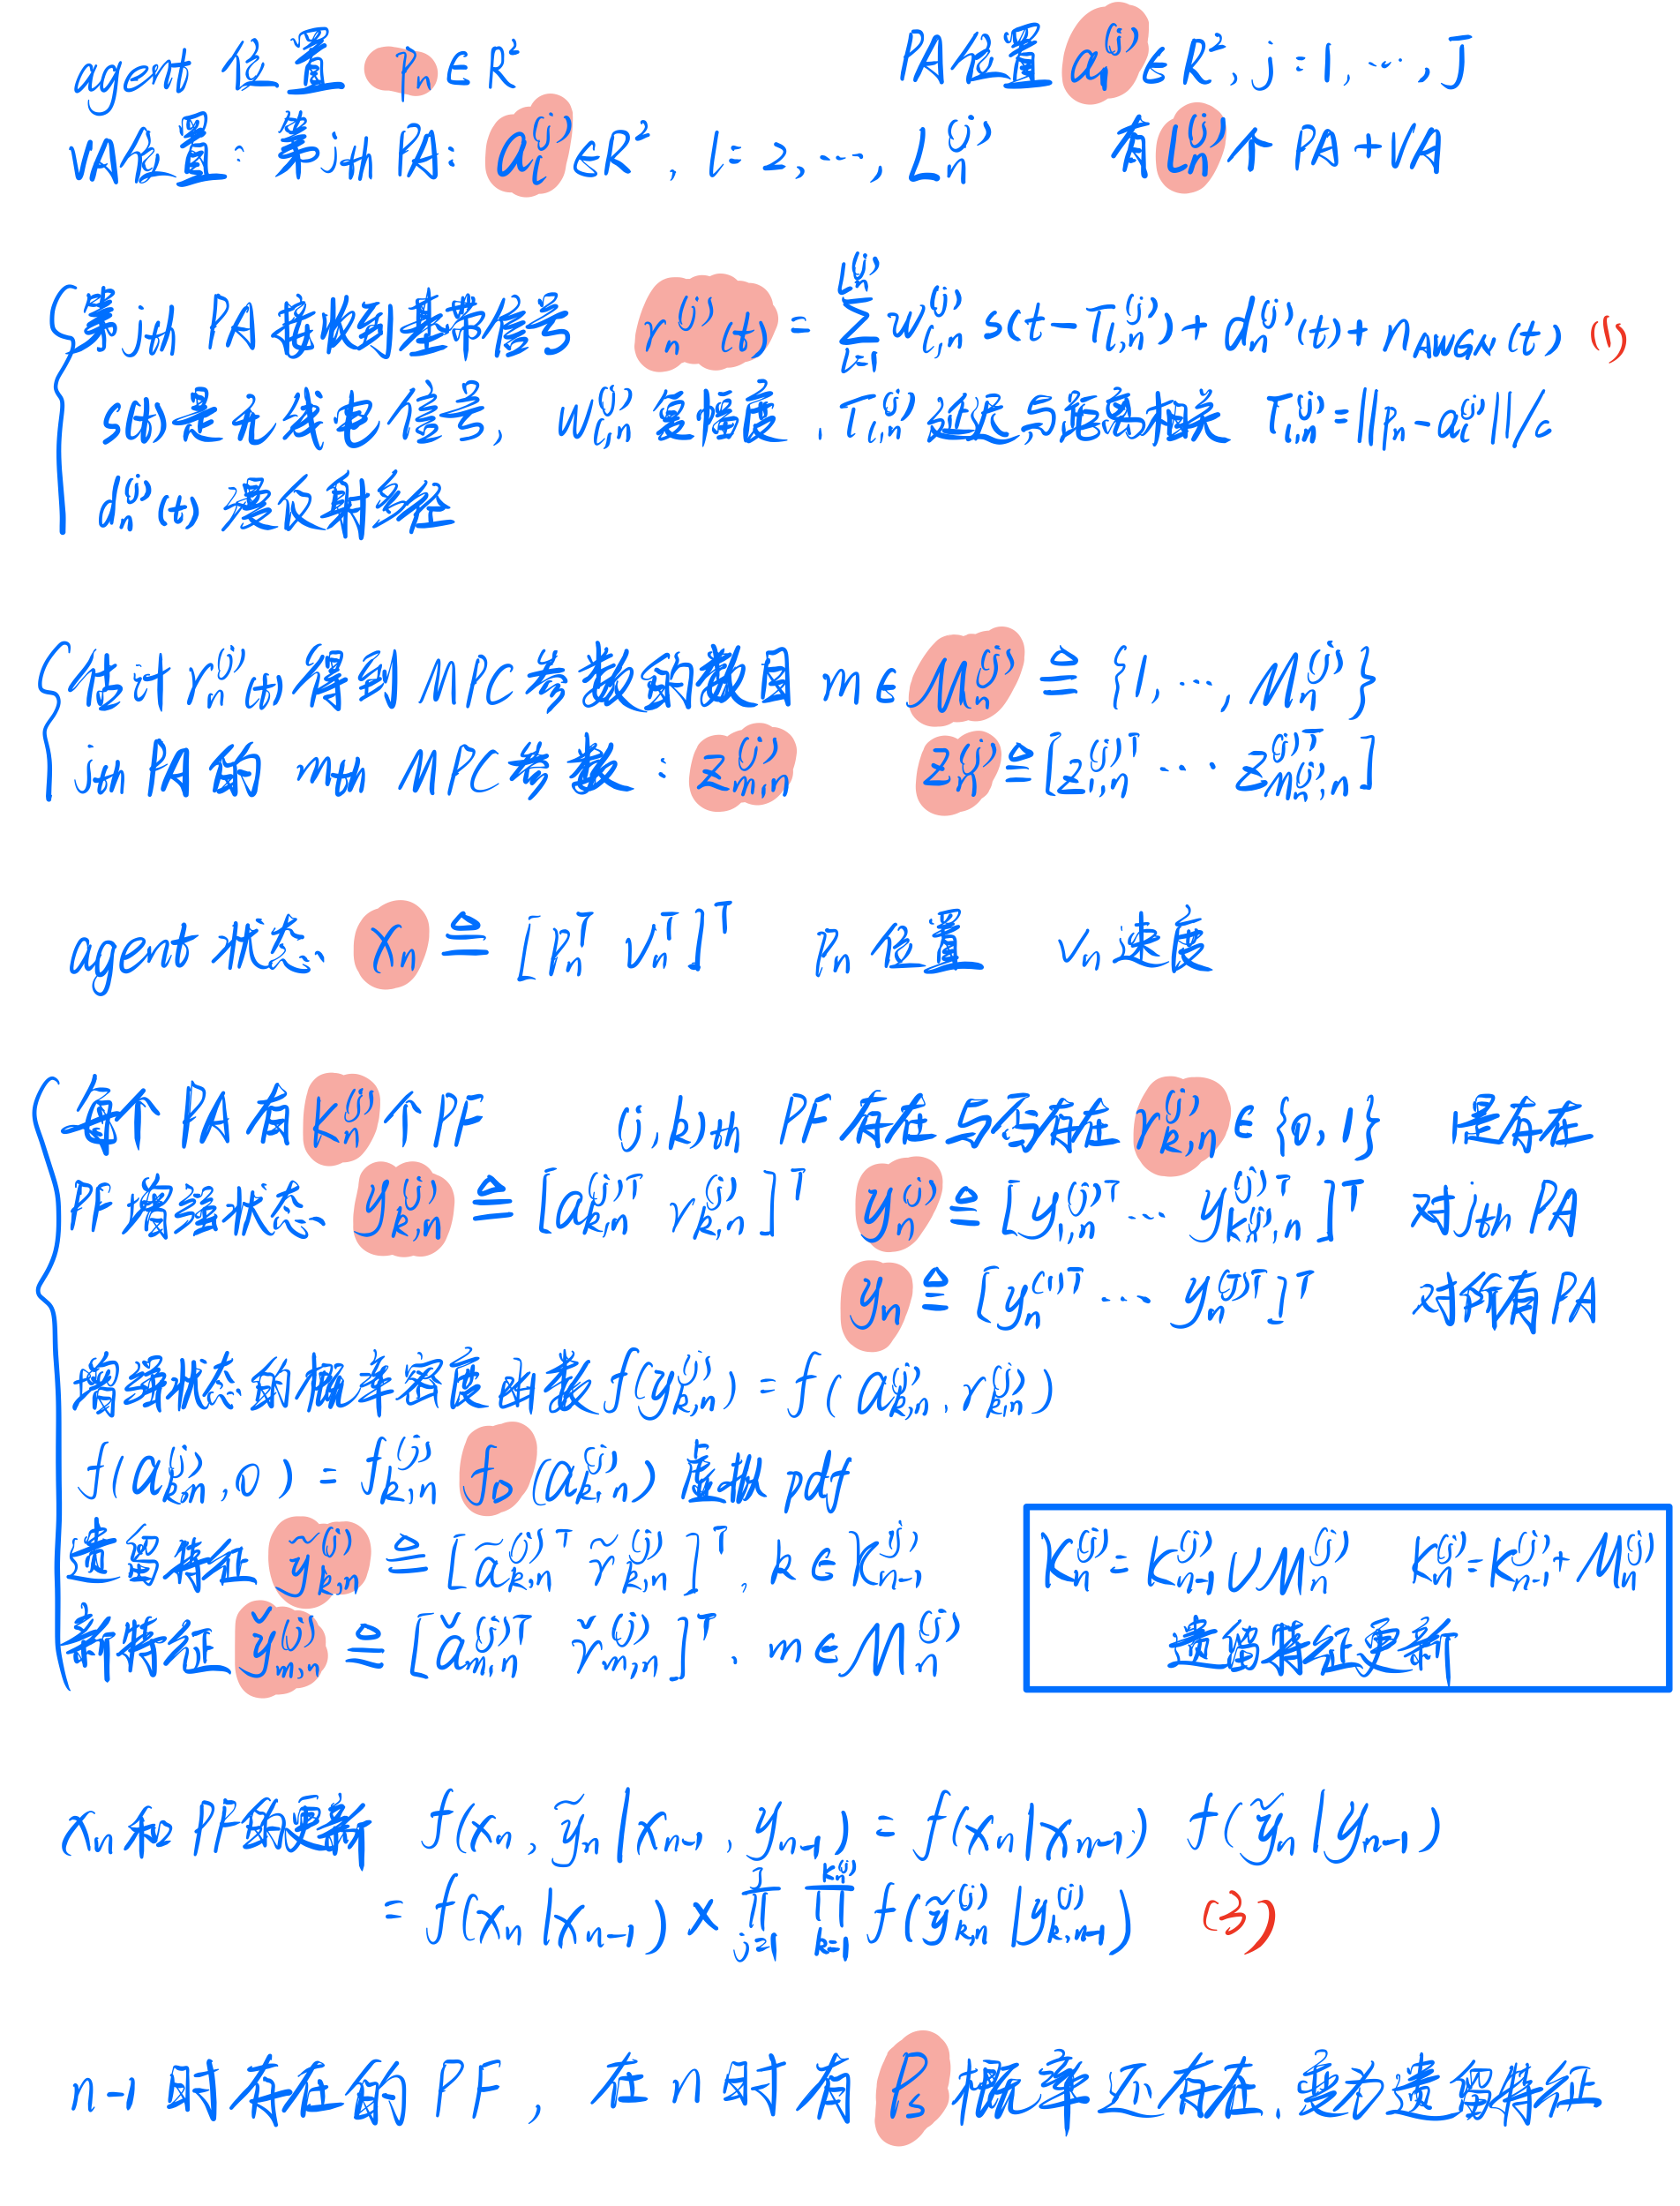 agent 位置 pₙ∈R² PA位置 a₁⁽ʲ⁾∈R², j=1,…,J
VA位置: 第jth PA: aₗ⁽ʲ⁾∈R², l=2,…, Lₙ⁽ʲ⁾ 有Lₙ⁽ʲ⁾个 PA+VA
第jth PA接收到基带信号 rₙ^(j)(t) = Σ_{l=1}^{Lₙ^(j)} w_{l,n}^(j) s(t-τ_{l,n}^(j)) + dₙ^(j)(t) + n_AWGN(t) (1)
s(t)是无线电信号, w_{l,n}^(j)复幅度, τ_{l,n}^(j)延迟与距离相关 τ_{l,n}^(j)=||pₙ-aₗ^(j)||/c
dₙ^(j)(t) 漫反射多径
估计rₙ^(j)(t)得到MPC参数的数目 m∈𝓜ₙ^(j) ≜ {1,…,Mₙ^(j)}
jth PA的 mth MPC参数: z_{m,n}^(j) zₙ^(j) ≜ [z_{1,n}^(j)T … z_{Mₙ^(j),n}^(j)T]
agent状态 xₙ ≜ [pₙ^T vₙ^T]^T pₙ位置 vₙ速度
每个PA有Kₙ^(j)个PF (j,k)th PF存在与否存在 r_{k,n}^(j)∈{0,1} 1是存在
PF增强状态 y_{k,n}^(j) ≜ [a_{k,n}^(j)T r_{k,n}^(j)]^T yₙ^(j) ≜ [y_{1,n}^(j)T … y_{Kₙ^(j),n}^(j)T]^T 对jth PA
yₙ ≜ [yₙ^(1)T … yₙ^(J)T]^T 对所有PA
增强状态的概率密度函数f(y_{k,n}^(j)) = f(a_{k,n}^(j), r_{k,n}^(j))
f(a_{k,n}^(j),0) = f_{k,n}^(j) f_D(a_{k,n}^(j)) 虚拟pdf
遗留特征 ỹ_{k,n}^(j) ≜ [ã_{k,n}^(j)T r̃_{k,n}^(j)]^T, k∈𝒦_{n-1}^(j)
新特征 y̆_{m,n}^(j) ≜ [ă_{m,n}^(j)T r̆_{m,n}^(j)]^T, m∈𝓜ₙ^(j)
𝒦ₙ^(j)=𝒦_{n-1}^(j)∪𝓜ₙ^(j) Kₙ^(j)=K_{n-1}^(j)+Mₙ^(j)
遗留特征更新
xₙ和PF的更新 f(xₙ, ỹₙ|x_{n-1}, y_{n-1}) = f(xₙ|x_{n-1}) f(ỹₙ|y_{n-1})
= f(xₙ|x_{n-1}) × ∏_{j=1}^{J} ∏_{k=1}^{Kₙ^(j)} f(ỹ_{k,n}^(j)|y_{k,n-1}^(j)) (3)
n-1时存在的PF, 在n时有Pₛ概率还存在, 变为遗留特征